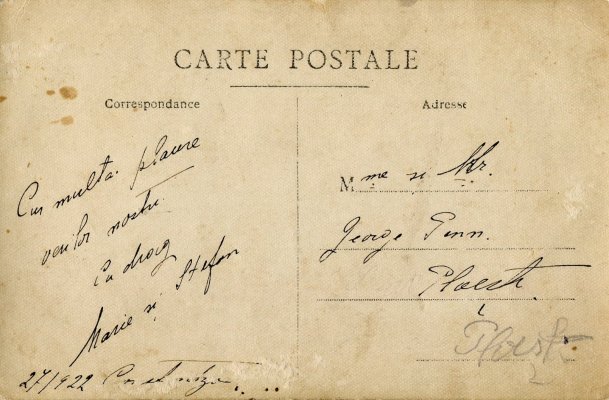 CARTE POSTALE
Correspondance
Adresse
Cu multa placere
verilor nostri
Cu drag
Marie si Stefan
27/922
Mme si Mr.
George Penn.
Ploesti
Ploesti